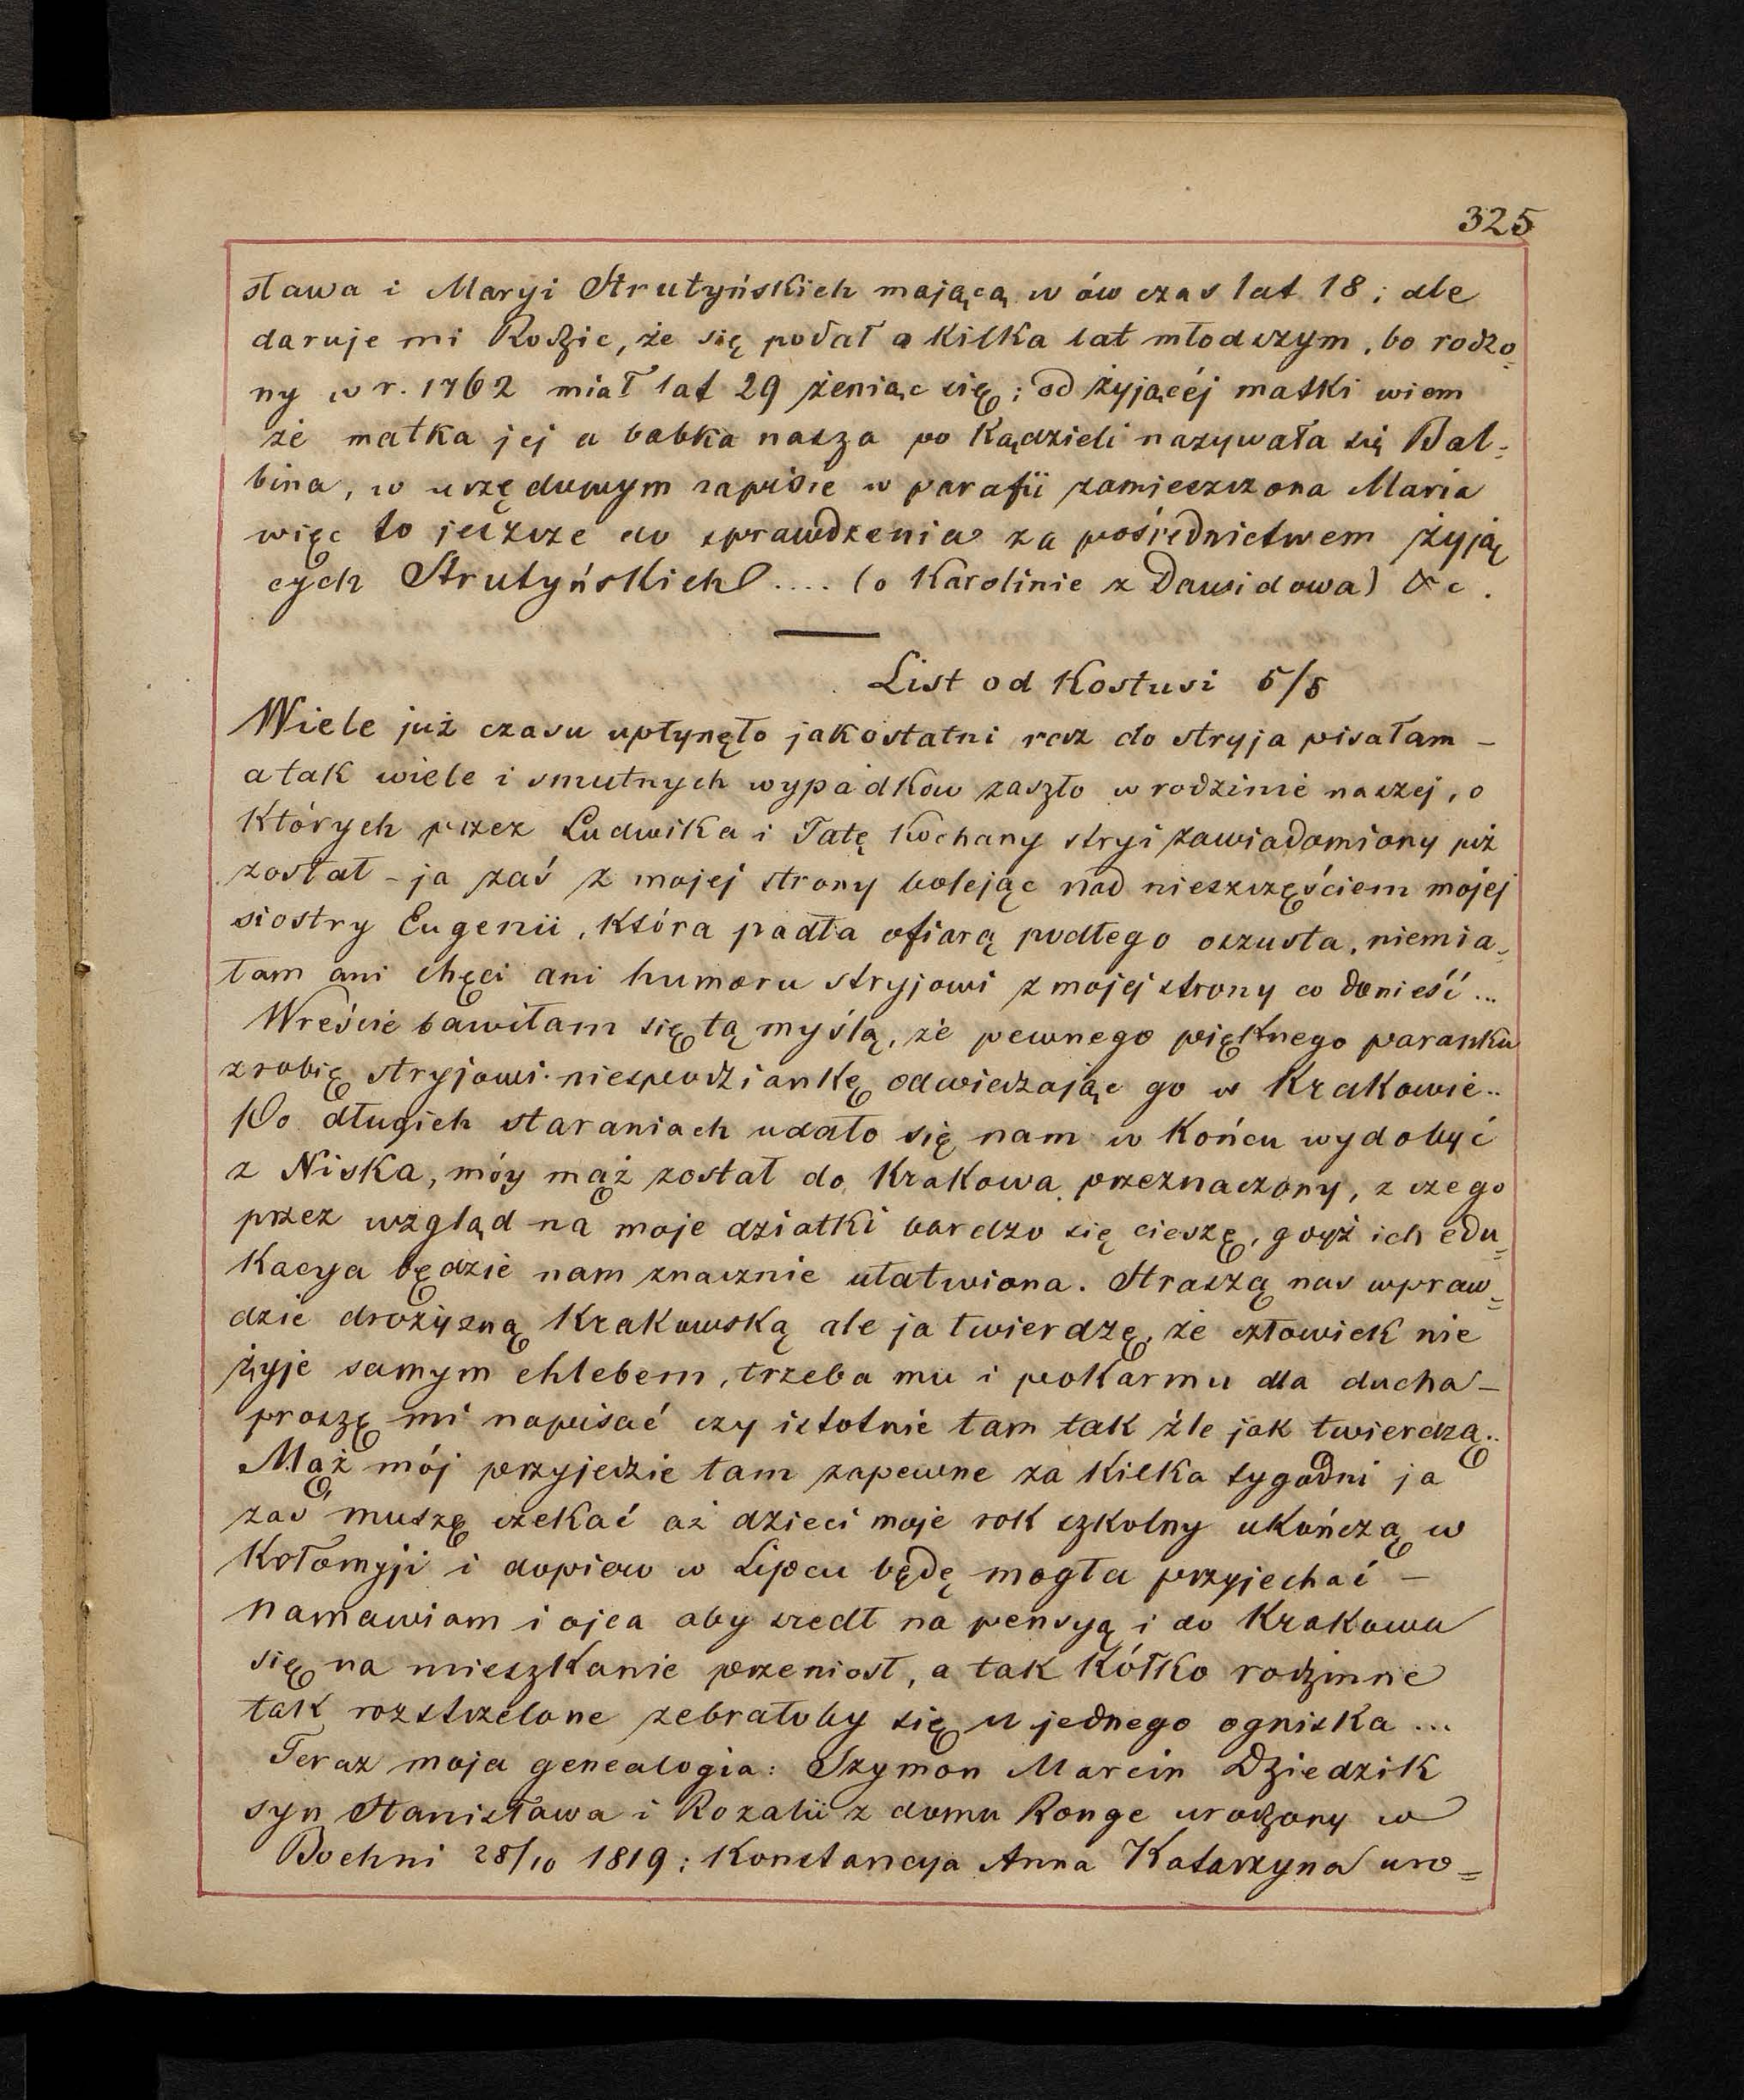 325
sława i Maryi Strutyńskich mającą w ów czas lat 18; ale
daruje mi Rodzic, że się podał o kilka lat młodszym, bo rodzo=
ny w r. 1762 miał lat 29 żeniąc się; od żyjącéj matki wiem
że matka jej a babka nasza po kądzieli nazywała się Bal=
bina, w urzędowym zapisie w parafii zamieszczona Maria
więc to jeszcze do sprawdzenia za pośrednictwem żyją
cych Strutyńskich .... (o Karolinie z Dawidowa) &c.
List od Kostusi 5/5
Wiele już czasu upłynęło jak ostatni raz do stryja pisałam –
a tak wiele i smutnych wypadków zaszło w rodzinie naszej, o
których przez Ludwika i Tatę kochany stryj zawiadomiony już
został – ja zaś z mojej strony bolejąc nad nieszczęściem mojej
siostry Eugenii, która padła ofiarą podłego oszusta, niemia=
łam ani chęci ani humoru stryjowi z mojej strony co donieść ...
Wreście bawiłam się tą myślą, że pewnego pięknego poranku
zrobię stryjowi niespodziankę odwiedzając go w Krakowie..
Po długich staraniach udało się nam w końcu wydobyć
z Niska, móy mąż został do Krakowa przeznaczony, z czego
przez wzgląd na moje dziatki bardzo się cieszę, gdyż ich edu=
kacya będzie nam znacznie ułatwiona. Straszą nas wpraw=
dzie drożyzną Krakowską ale ja twierdzę, że człowiek nie
żyje samym chlebem, trzeba mu i pokarmu dla ducha –
proszę mi napisać czy istotnie tam tak źle jak twierdzą..
Mąż mój przyjedzie tam zapewne za kilka tygodni ja
zaś muszę czekać aż dzieci moje rok szkolny ukończą w
Kołomyji i dopiero w Lipcu będę mogła przyjechać –
namawiam i ojca aby szedł na pensyą i do Krakowa
się na mieszkanie przeniosł, a tak kółko rodzinne
tak rozstrzelone zebrałoby się u jednego ogniska ...
Teraz moja genealogia: Szymon Marcin Dziedzik
syn Stanisława i Rozalii z domu Ronge urodzony w
Bochni 28/10 1819; Konstancya Anna Katarzyna uro=